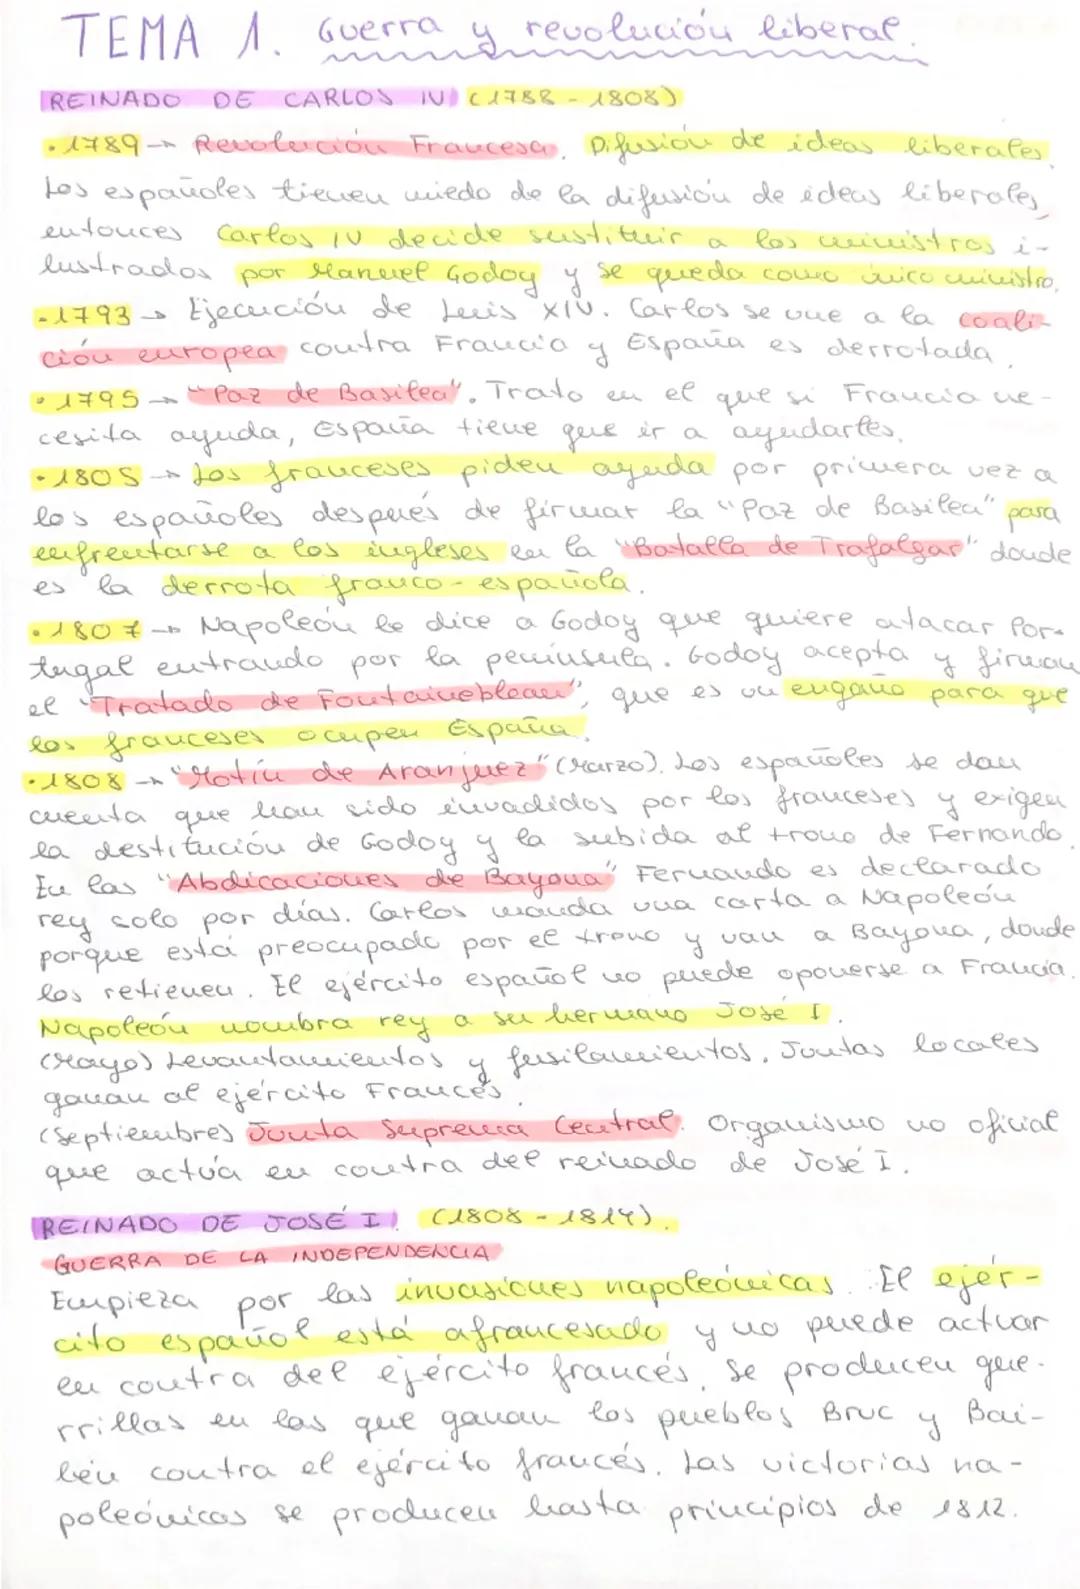 TEMA 1. Guerra y revolución liberal.
REINADO DE CARLOS IV (1788 - 1808)
· 1789 → Revolución Francesa. Difusión de ideas liberales.
Los españoles tienen miedo de la difusión de ideas liberales,
entonces Carlos IV decide sustituir a los ministros i-
lustrados por Manuel Godoy y se queda como único ministro.
· 1793 → Ejecución de Luis XIV. Carlos se une a la coali-
ción europea contra Francia y España es derrotada.
· 1795 → "Paz de Basilea". Trato en el que si Francia ne-
cesita ayuda, España tiene que ir a ayudarles.
· 1805 → Los franceses piden ayuda por primera vez a
los españoles después de firmar la "Paz de Basilea" para
enfrentarse a los ingleses en la "Batalla de Trafalgar" donde
es la derrota franco-española.
· 1807 → Napoleón le dice a Godoy que quiere atacar Por-
tugal entrando por la península. Godoy acepta y firman
el "Tratado de Fontainebleau", que es un engaño para que
los franceses ocupen España.
· 1808 → "Motín de Aranjuez" (Marzo). Los españoles se dan
cuenta que han sido invadidos por los franceses y exigen
la destitución de Godoy y la subida al trono de Fernando.
En las "Abdicaciones de Bayona" Fernando es declarado
rey solo por días. Carlos manda una carta a Napoleón
porque está preocupado por el trono y van a Bayona, donde
los retienen. El ejército español no puede oponerse a Francia.
Napoleón nombra rey a su hermano José I.
(Mayo) Levantamientos y fusilamientos. Juntas locales
ganan al ejército Francés.
(Septiembre) Junta Suprema Central. Organismo no oficial
que actúa en contra del reinado de José I.
REINADO DE JOSÉ I. (1808 - 1814).
GUERRA DE LA INDEPENDENCIA
Empieza por las invasiones napoleónicas. El ejér-
cito español está afrancesado y no puede actuar
en contra del ejército francés. Se producen gue-
rrillas en las que ganan los pueblos Bruc y Bai-
lén contra el ejército francés. Las victorias na-
poleónicas se producen hasta principios de 1812.